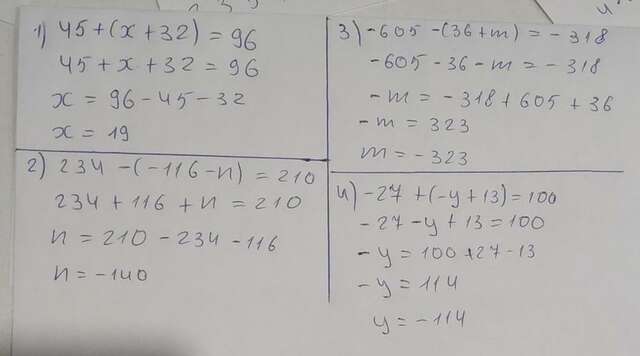 1) 45+(x+32)=96
45+x+32=96
x=96-45-32
x=19
2) 234-(-116-n)=210
234+116+n=210
n=210-234-116
n=-140
3) -605-(36+m)=-318
-605-36-m=-318
-m=-318+605+36
-m=323
m=-323
4) -27+(-y+13)=100
-27-y+13=100
-y=100+27-13
-y=114
y=-114